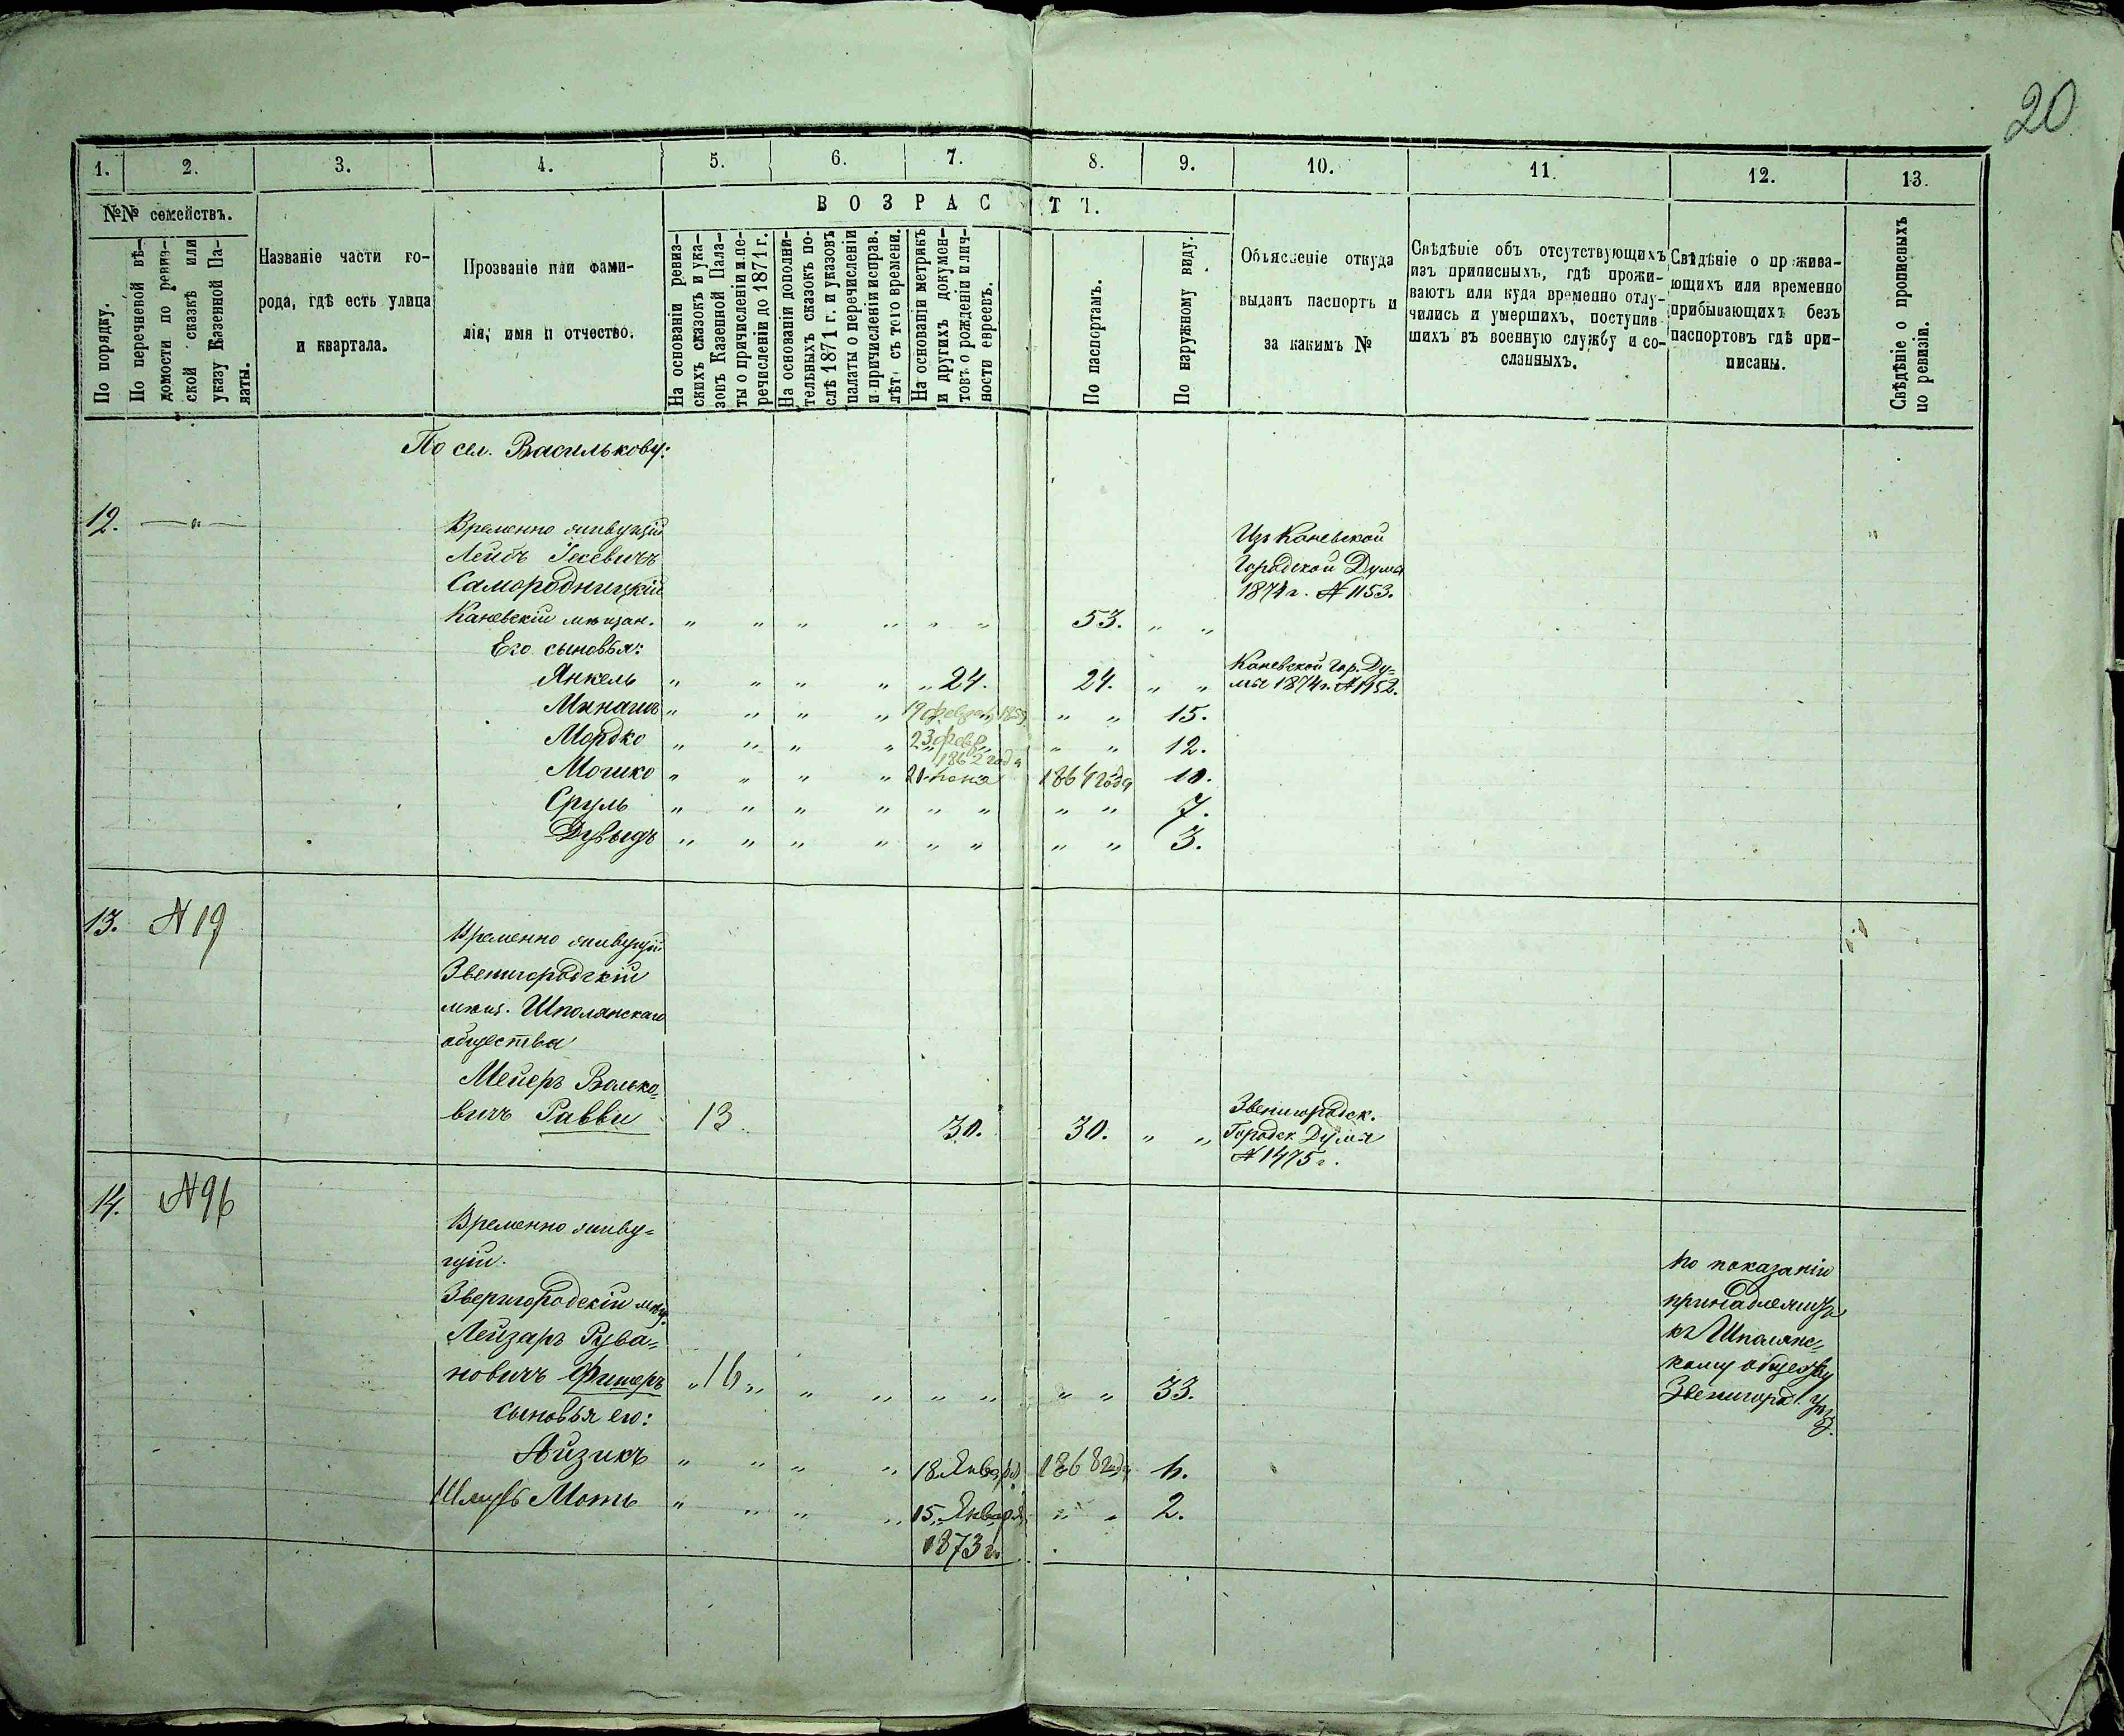 20
1. 2. 3. 4. 5. 6. 7. 8. 9. 10. 11. 12. 13.
№№ семействъ.
По порядку.
По перечневой вѣ-
домости по ревиз-
ской сказкѣ или
указу Казенной Па-
латы.
Названіе части го-
рода, гдѣ есть улица
и квартала.
Прозваніе или фами-
лія, имя и отчество.
ВОЗРАСТЪ.
На основаніи ревиз-
скихъ сказокъ и ука-
зовъ Казенной Пала-
ты о причисленіи и пе-
речисленіи до 1871 г.
На основаніи дополни-
тельныхъ сказокъ по-
слѣ 1871 г. и указовъ
палаты о перечисленіи
и причисленіи исправ.
лѣт. съ того времени.
На основаніи метрикъ
и другихъ докумен-
товъ о рожденіи и лич-
ности евреевъ.
По паспортамъ.
По наружному виду.
Объясненіе откуда
выданъ паспортъ и
за какимъ №
Свѣдѣніе объ отсутствующихъ
изъ приписныхъ, гдѣ прожи-
ваютъ или куда временно отлу-
чились и умершихъ, поступив-
шихъ въ военную службу и со-
сланныхъ.
Свѣдѣніе о прожива-
ющихъ или временно
прибывающихъ безъ
паспортовъ гдѣ при-
писаны.
Свѣдѣніе о прописныхъ
по ревизіи.
По сел. Василькову:
12. — „ —
Временно живущій
Лейбъ Іосевичъ
Самородницкій
Каневскій мѣщан. „ „ „ „ „ „ 53. „ „
Изъ Каневской
Городской Думы
1874 г. № 1153.
Его сыновья:
Янкель „ „ „ „ „ 24. 24. „ „
Каневской гор. Ду-
мы 1874 г. № 1152.
Манашъ „ „ „ „ 19 февраля 1859 „ „ 15.
Мордко „ „ „ „ 23 февр. „ „ 12.
1862 года
Мошко „ „ „ „ 21 1864 года 10.
Сруль „ „ „ „ „ „ „ „ 7.
Дувыдъ „ „ „ „ „ „ „ „ 3.
13. № 19
Временно живущій
Звенигородскій
мѣщ. Шполянскаго
общества
Мейеръ Волько-
вичъ Равви 13 30. 30. „ „
Звенигородск.
Городск. Думы
№ 1475 г.
14. № 96
Временно живу-
щій
Звенигородскій мѣщ.
Лейзаръ Рува-
новичъ Фишеръ „ 16 „ „ „ „ „ „ „ 33.
По показанію
принадлежитъ
къ Шполянс-
кому обществу
Звенигород. Уѣз.
сыновья его:
Айзикъ „ „ „ „ 18 Января 1868 года 6.
Шмуль Моть „ „ „ „ 15 Января „ „ 2.
1873 г.